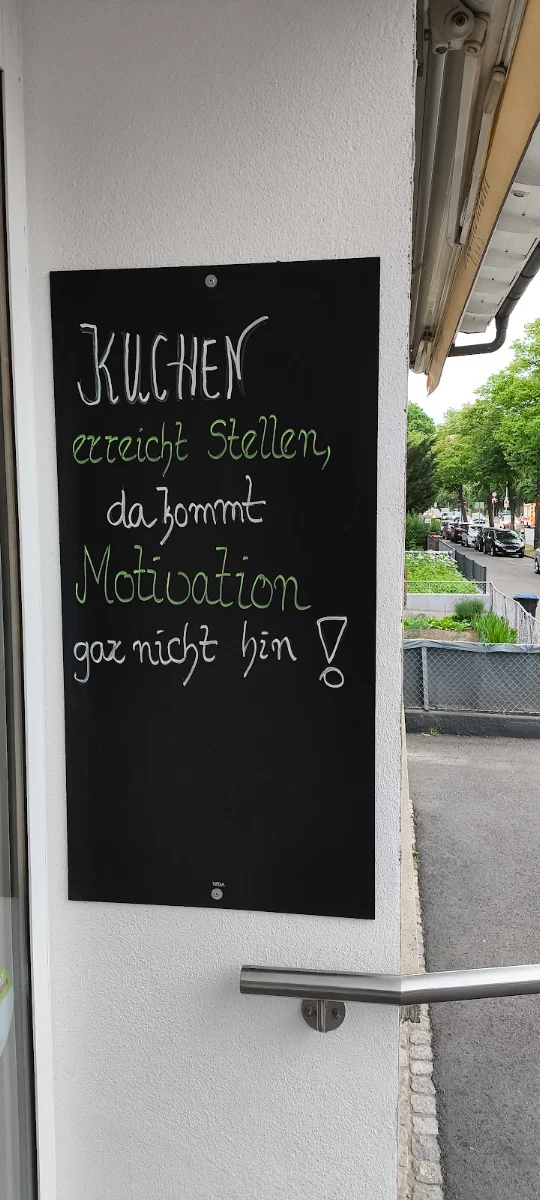 KUCHEN
erreicht Stellen,
da kommt
Motivation
gar nicht hin !